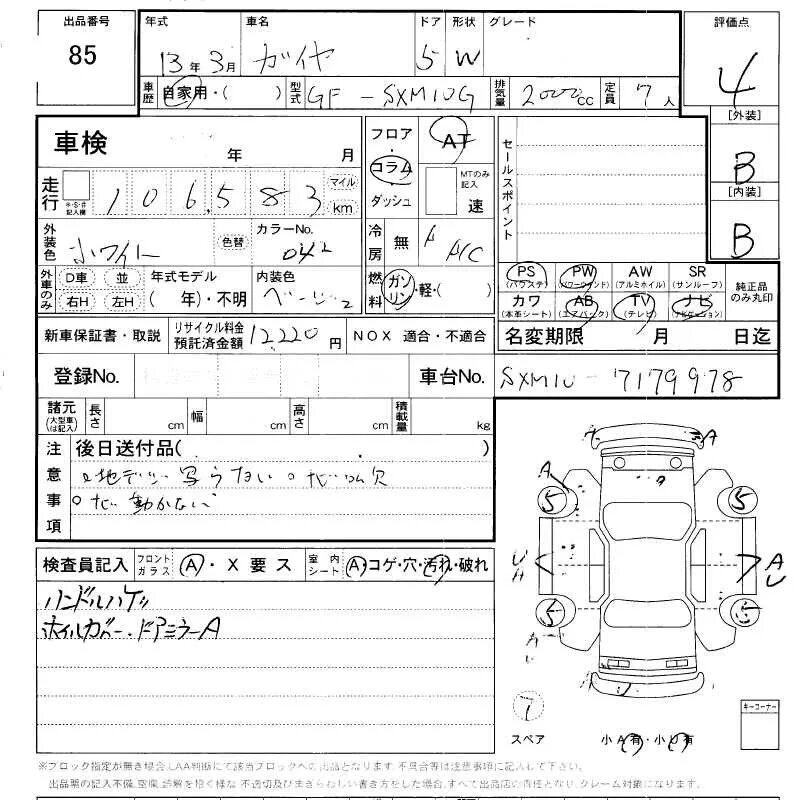 出品番号 年式 車名 ドア 形状 グレード 評価点
85 13年3月 ガイヤ 5 W 4
車歴 自家用・( ) 型式 GF-SXM10G 排気量 2000cc 定員 7人
[外装]
B
[内装]
B
車検 年 月
フロア・コラム ダッシュ
AT
MTのみ記入 速
セールスポイント
走行 ※・$・#記入欄 106,583 マイル km
外装色 ホワイト 色替 カラーNo. 042
冷房 無 A A/C
外車のみ D車 並 右H 左H 年式モデル ( 年)・不明 内装色 ベージュ
燃料 ガソリン・軽・( )
PS (パワステ) PW (パワーウインド) AW (アルミホイル) SR (サンルーフ) 純正品のみ丸印
カワ (本革シート) AB (エアバック) TV (テレビ) ナビ (ナビゲーション)
新車保証書・取説 リサイクル料金預託済金額 12,220円 NOX 適合・不適合
名変期限 月 日迄
登録No. 車台No. SXM10-7179978
諸元 (大型車は記入) 長さ cm 幅 cm 高さ cm 積載量 kg
注意事項 後日送付品( )
動かない
検査員記入 フロントガラス A・X要ス 室内シート A・コゲ・穴・汚れ・破れ
ハンドルハゲ
ホイルカバー・ドアミラーA
A
A
5 5
U A
A U
5 5
A
U
1
スペア 小A有・小U有
キーコーナー
※ブロック指定が無き場合、LAA判断にて該当ブロックへの出品となります。不具合等は注意事項に記入して下さい。
出品票の記入不備、空欄、誤解を招く様な不適切及びまぎらわしい書き方をした場合、すべて出品店の責任となり、クレーム対象になります。